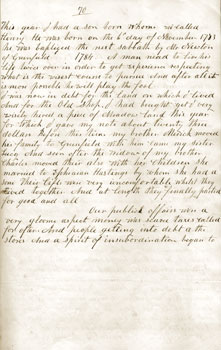 70
This year I had a son born whom we called
Henry He was born on the 6th day of November 1783
he was baptized the next sabbath by Mr Newton
of Greenfield 1784 A man need to live his
life twice over in order to get experience respecting
what is the wisest course to pursue And after all it
is more possible he will play the fool
I was now in debt for the Land on which I lived
And for the Old Shop I had bought
a piece of Meadow Land this year
for which I gave my note about twenty, three
dollars before this time my brother
his family to Greenfield with him came my sister
Lucy And soon after the widow of my brother
Charles moved their also with her Children She
married to Ephraim Hastings by whom she had a
son Their Life was very uncomfortable whilst they
lived together And at length they finally parted
for good and all
Our publick affairs wore a
very gloomy aspect money was scarce taxes called
for often And people getting into debt at the
stores And a Spirit of insubordination began to